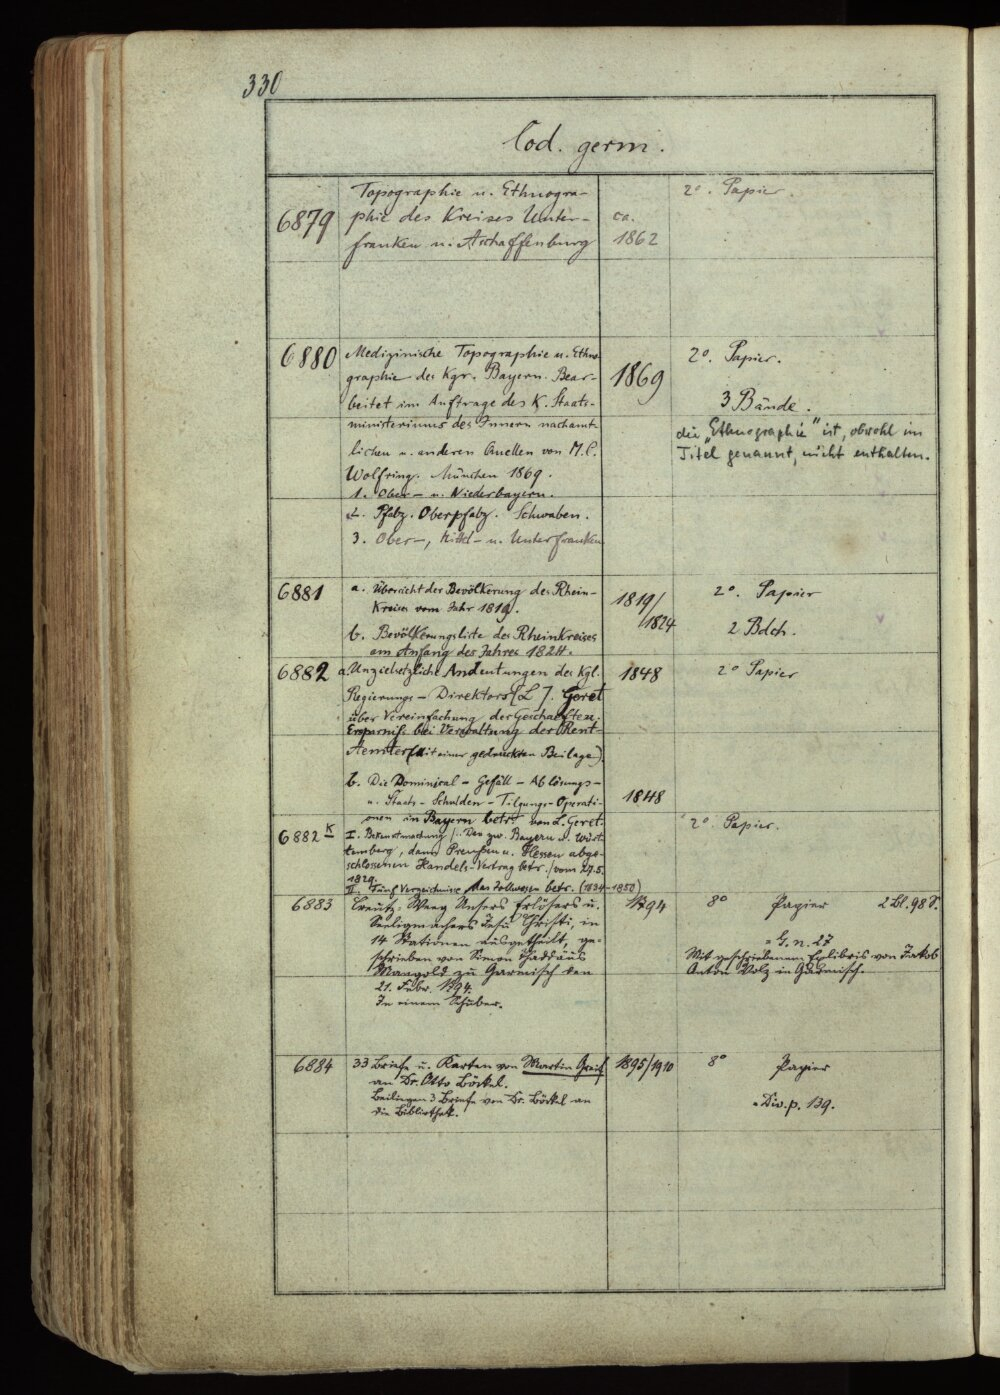 330
Cod. germ.
6879
Topographie u. Ethnogra-
phie des Kreises Unter-
franken u. Aschaffenburg
ca.
1862
2°. Papier.
6880
Medizinische Topographie u. Ethno-
graphie des Kgr. Bayern. Bear-
beitet im Auftrage des K. Staats-
ministeriums des Innern nach amt-
lichen u. anderen Quellen von M. C.
Wolfring. München 1869.
1. Ober- u. Niederbayern.
2. Pfalz. Oberpfalz. Schwaben.
3. Ober-, Mittel- u. Unterfranken
1869
2°. Papier.
3 Bände.
die „Ethnographie" ist, obwohl im
Titel genannt, nicht enthalten.
6881
a. Übersicht der Bevölkerung des Rhein-
Kreises vom Jahr 1819.
b. Bevölkerungsliste des Rheinkreises
am Anfang des Jahres 1824.
1819/
1824
2°. Papier
2 Bdch.
6882
a. Unzielsetzliche Andeutungen des Kgl.
Regierungs-Direktors [L]. Geret
über Vereinfachung der Geschaeften.
Ersparniss bei Verwaltung der Rent-
Aemter (mit einer gedruckten Beilage).
1848
2° Papier
b. Die Dominical-Gefäll-Ablösungs-
u. Staats-Schulden-Tilgungs-Operati-
onen in Bayern betr. von L. Geret.
1848
6882 K
I. Bekanntmachung /:. Den zw. Bayern u. Würt-
temberg, dann Preußen u. Hessen abge-
schlossenen Handels-Vertrag betr./ vom 27.5.
1829.
II. Fünf Verzeichnisse, das Zollwesen betr. (1834-1850)
2°. Papier.
6883
Kreutz-Weeg Unsers Erlösers u.
Seeligmachers Jesu Christi, in
14 Stationen ausgetheilt, ge-
schrieben von Simon Thaddäus
Mangold zu Garmisch den
21. Febr. 1794.
In einem Schuber.
1794
8° Papier 2 Bl. 98 S.
= G. n. 27
Mit geschriebenem Exlibris von Jakob
Anton Volz in Garmisch.
6884
33 Briefe u. Karten von Martin Greif
an Dr. Otto Böckel.
Beiliegen 3 Briefe von Dr. Böckel an
die Bibliothek.
1895/1910
8° Papier
= Div. p. 139.